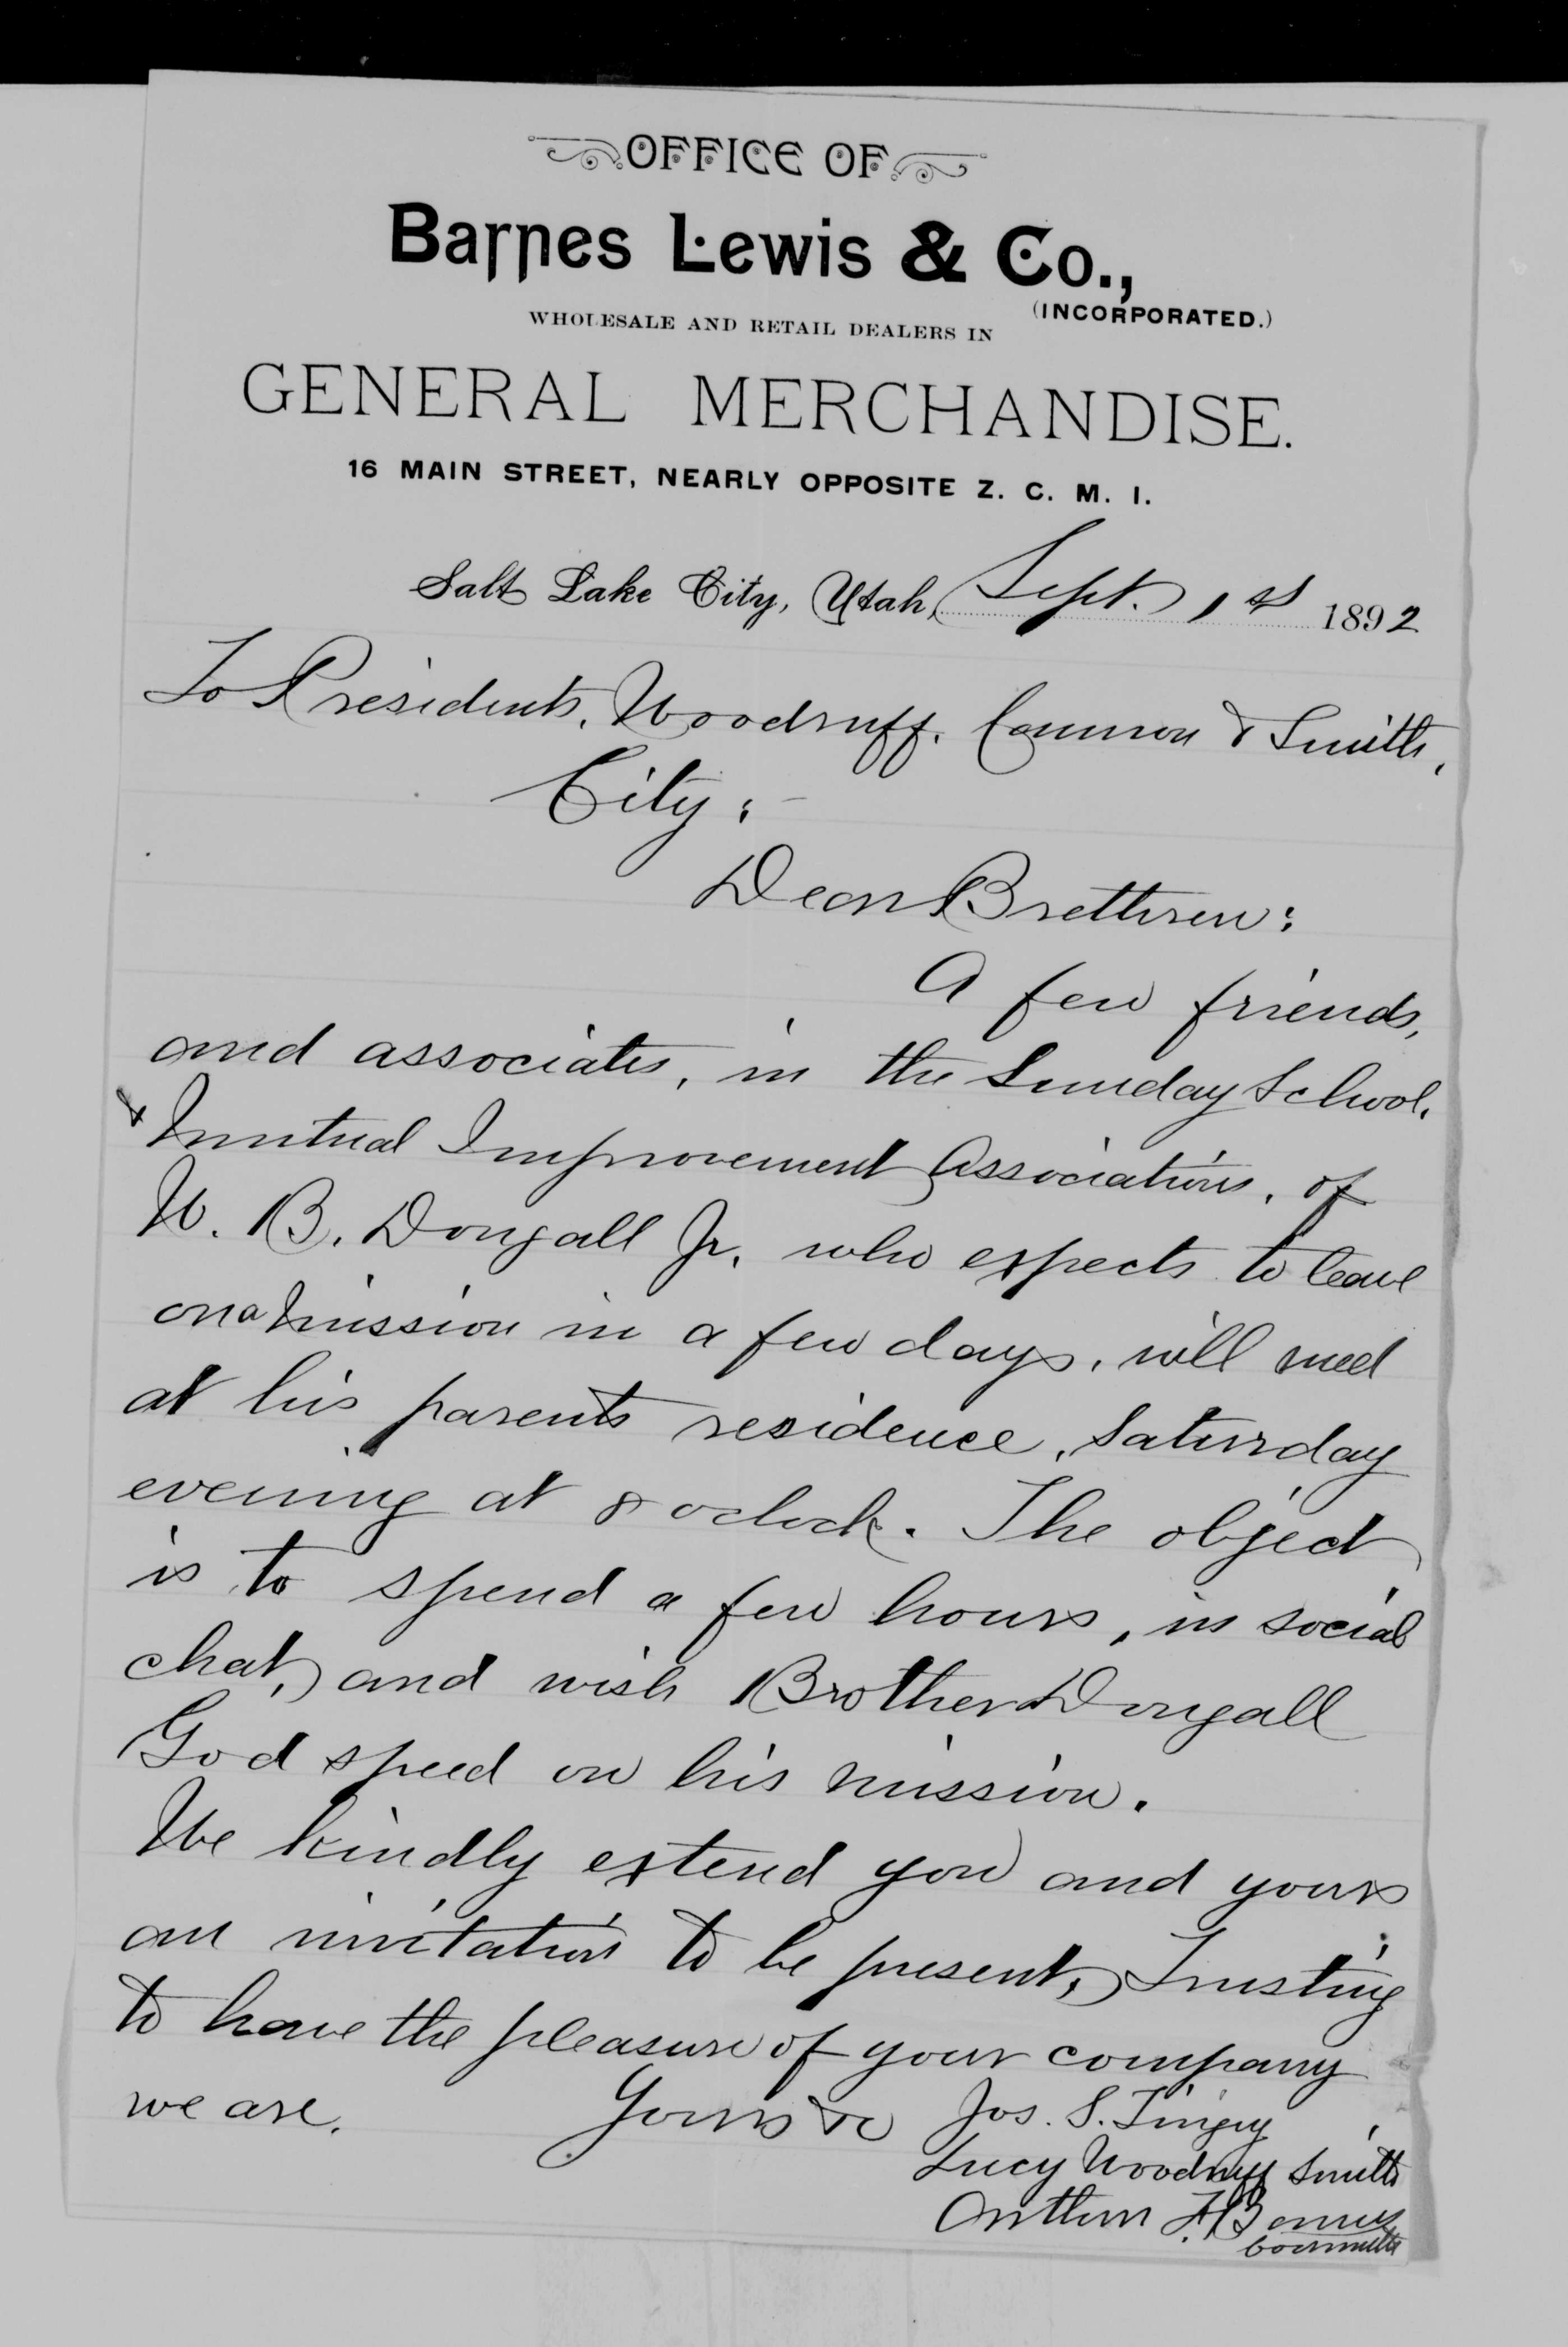 OFFICE OF
Barnes Lewis & Co.,
(INCORPORATED.)
WHOLESALE AND RETAIL DEALERS IN
GENERAL MERCHANDISE.
16 MAIN STREET, NEARLY OPPOSITE Z. C. M. I.
Salt Lake City, Utah, Sept. 1st 1892
To Presidents, Woodruff, Cannon & Smith,
City;
Dear Brethren:
A few friends,
and associates, in the Sunday School,
& Mutual Improvement Associations, of
W. B. Dougall Jr. who expects to leave
on a mission in a few days, will meet
at his parents residence, Saturday
evening at 8 oclock. The object
is to spend a few hours, in social
chat, and wish Brother Dougall
God speed on his mission.
We kindly extend you and yours
an invitation to be present, Trusting
to have the pleasure of your company
we are. Yours &c Jos. S. Tingey
Lucy Woodruff Smith
Arthur F. Barnes
Committee